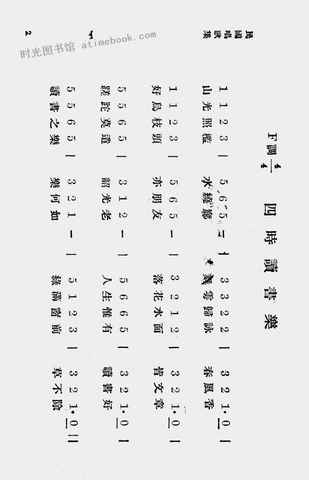 时光图书馆 atimebook.com
民國唱歌集
2
四時讀書樂
F調 4/4
1 1 2 3 | 5 6 5 – | 3 3 2 2 | 3 2 1· 0 |
山光照檻 水繞廊 舞雩歸詠 春風香
1 1 2 3 | 5 6 5 – | 3 2 1 2 | 3 2 1· 0 |
好鳥枝頭 亦朋友 落花水面 皆文章
5 5 6 5 | 3 1 2 – | 5 6 6 5 | 3 2 1· 0 |
蹉跎莫遣 韶光老 人生惟有 讀書好
5 5 6 5 | 3 2 1 – | 5 1 2 3 | 3 2 1· 0 ||
讀書之樂 樂何如 綠滿窗前 草不除